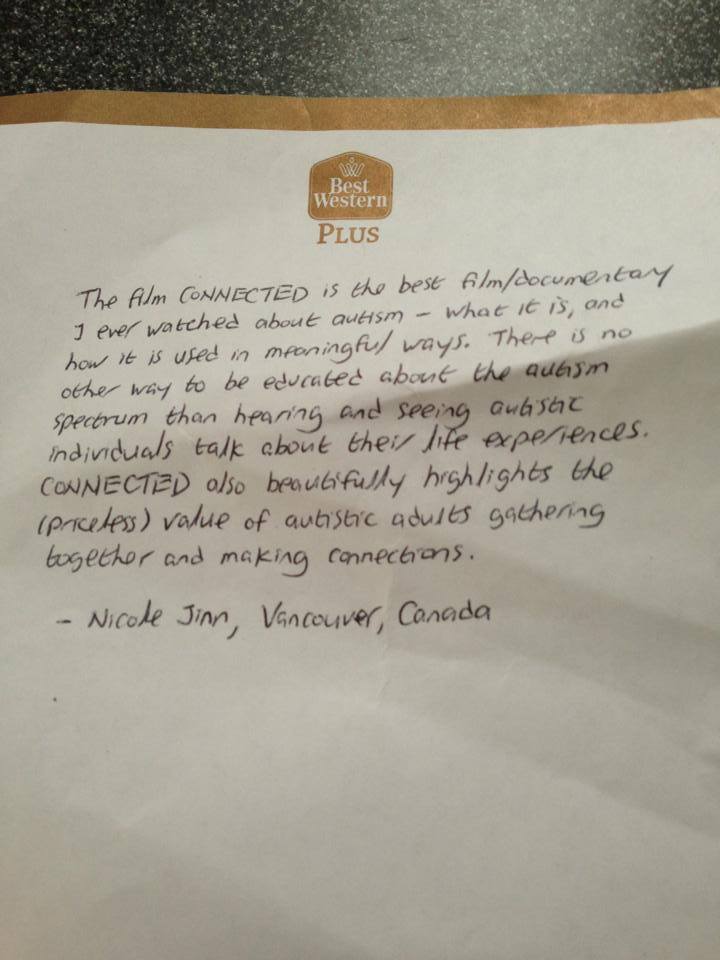 Best
Western
PLUS
The film CONNECTED is the best film/documentary
I ever watched about autism – what it is, and
how it is used in meaningful ways. There is no
other way to be educated about the autism
spectrum than hearing and seeing autistic
individuals talk about their life experiences.
CONNECTED also beautifully highlights the
(priceless) value of autistic adults gathering
together and making connections.
– Nicole Jinn, Vancouver, Canada